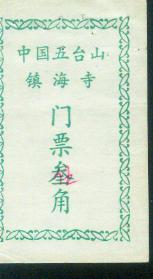 中国五台山
镇海寺
门票叁角